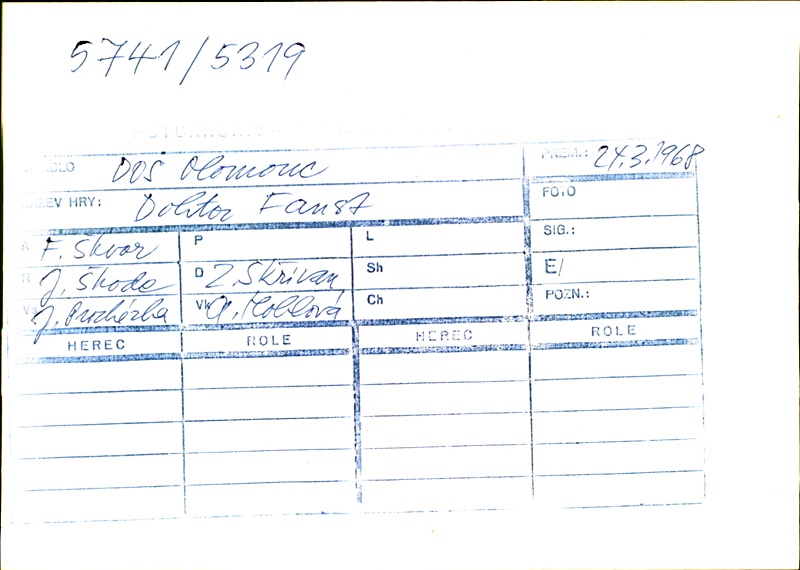 5741/5319
DOS Olomouc
PREM.: 24.3.1968
ZEV HRY: Doktor Faust
FOTO
A F. Škvor P L SIG.:
R J. Škoda D Z. Skřivan Sh E/
V J. Procházka Vk Ch POZN.:
HEREC ROLE HEREC ROLE